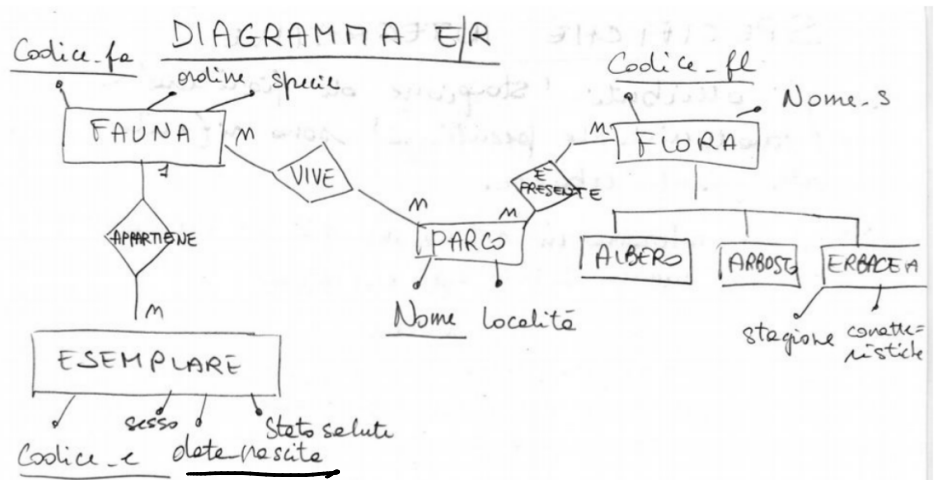 DIAGRAMMA E/R
Codice_fa
ordine
specie
FAUNA
n
1
VIVE
n
APPARTIENE
n
ESEMPLARE
Codice_e
sesso
data_nascita
Stato salute
PARCO
Nome
Località
n
È
PRESENTE
n
Codice_fl
Nome_s
FLORA
ALBERO
ARBOSTO
ERBACEA
stagione
caratte-
ristiche